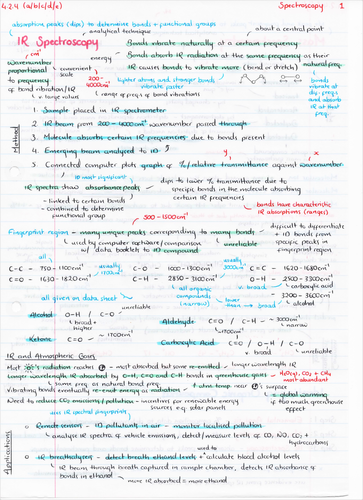 4.2.4 (a/b/c/d/e) Spectroscopy 1
absorption peaks (dips) to determine bonds + functional groups
analytical technique about a central point
IR Spectroscopy
Bonds vibrate naturally at a certain frequency
energy Bonds absorb IR radiation at the same frequency as their natural freq.
cm⁻¹ IR causes bonds to vibrate more (bend or stretch)
wavenumber proportional to frequency of bond vibration/IR
convenient scale
∴ large value
200 - 4000cm⁻¹
lighter atoms and stronger bonds vibrate faster
range of freq.s of bond vibrations
bonds vibrate at diff. freq.s and absorb IR at that freq.
Method
1 Sample placed in IR spectrometer
2 IR beam from 200-4000cm⁻¹ wavenumber passed through
3 Molecule absorbs certain IR frequencies due to bonds present
4 Emerging beam analysed to ID
5 Connected computer plots graph of %/relative transmittance against wavenumber
y x
IR spectra show absorbance peaks
dips to lower % transmittance due to specific bonds in the molecule absorbing certain IR frequencies
- linked to certain bonds
- combined to determine functional group
bonds have characteristic IR absorptions (ranges)
500 - 1500cm⁻¹
Fingerprint region - many unique peaks corresponding to many bonds - unreliable
used by computer software/comparison w/ data booklet to ID compound
difficult to differentiate + ID bonds from specific peaks in fingerprint region
all usually 1100cm⁻¹ usually 3000cm⁻¹
C-C - 750 - 1100cm⁻¹ C-O - 1000 - 1300cm⁻¹ C=C - 1620 - 1680cm⁻¹
C=O - 1630 - 1820cm⁻¹ C-H - 2850 - 3100cm⁻¹ O-H - 2500 - 3300cm⁻¹
carboxylic acid
3200 - 3600cm⁻¹
alcohol
all organic compounds (narrow)
all given on data sheet
unreliable
Alcohol O-H / C-O
broad + higher unreliable
Aldehyde C=O / C-H - 3000cm⁻¹
~1700cm⁻¹ narrow
Ketone C=O - 1700cm⁻¹
Carboxylic Acid C=O / O-H / C-O
v. broad unreliable
IR and Atmospheric Gases
Longer wavelength IR absorbed by O-H, C=O and C-H bonds in greenhouse gases - H₂O(g), CO₂ + CH₄
most abundant
same freq as natural bond freq.
vibrating bonds eventually re-emit energy as radiation
↑ atm. temp near surface
∴ global warming if too much greenhouse effect
Need to reduce CO₂ emissions/pollution - incentives for renewable energy sources e.g. solar panels
Applications
use IR spectral fingerprints
Remote sensors - ID pollutants in air - monitor localised pollution
analyse IR spectra of vehicle emissions, detect/measure levels of CO, NO, CO₂ + hydrocarbons
used to
IR breathalysers - detect breath ethanol levels + calculate blood alcohol levels
IR beam through breath captured in sample chamber, detects IR absorbance of bonds in ethanol
more IR absorbed = more ethanol